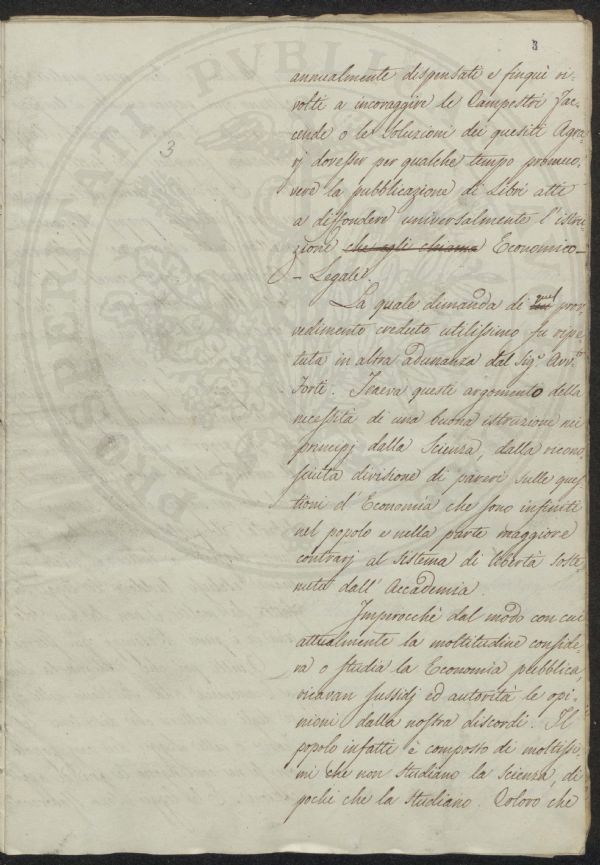 3
3
annualmente dispensati e finquì ri-
volti a incoraggire le Campestri Fac-
cende o le soluzioni dei quesiti Agra-
rj dovesser per qualche tempo promuo-
vere la pubblicazione di Libri atti
a diffondere universalmente l'istru-
zione che agli chiama Economico-
- Legale.
La quale dimanda di quel prov-
vedimento creduto utilissimo fu ripe-
tuta in altra adunanza dal Sig.e Avv.to
Forti. Traeva questi argomento della
necessità di una buona istruzione nei
principj dalla Scienza, dalla ricono-
sciuta divisione di pareri sulle ques-
tioni d'Economia che sono infiniti
nel popolo e nella parte maggiore
contrarj al sistema di libertà soste-
nuto dall'Accademia.
Imperocchè dal modo con cui
attualmente la moltitudine conside-
ra o studia la Economia pubblica,
ricavan sussidj ed autorità le opi-
nioni dalla nostra discordi. Il
popolo infatti è composto di moltissi-
mi che non studiano la scienza, di
pochi che la studiano. Coloro che